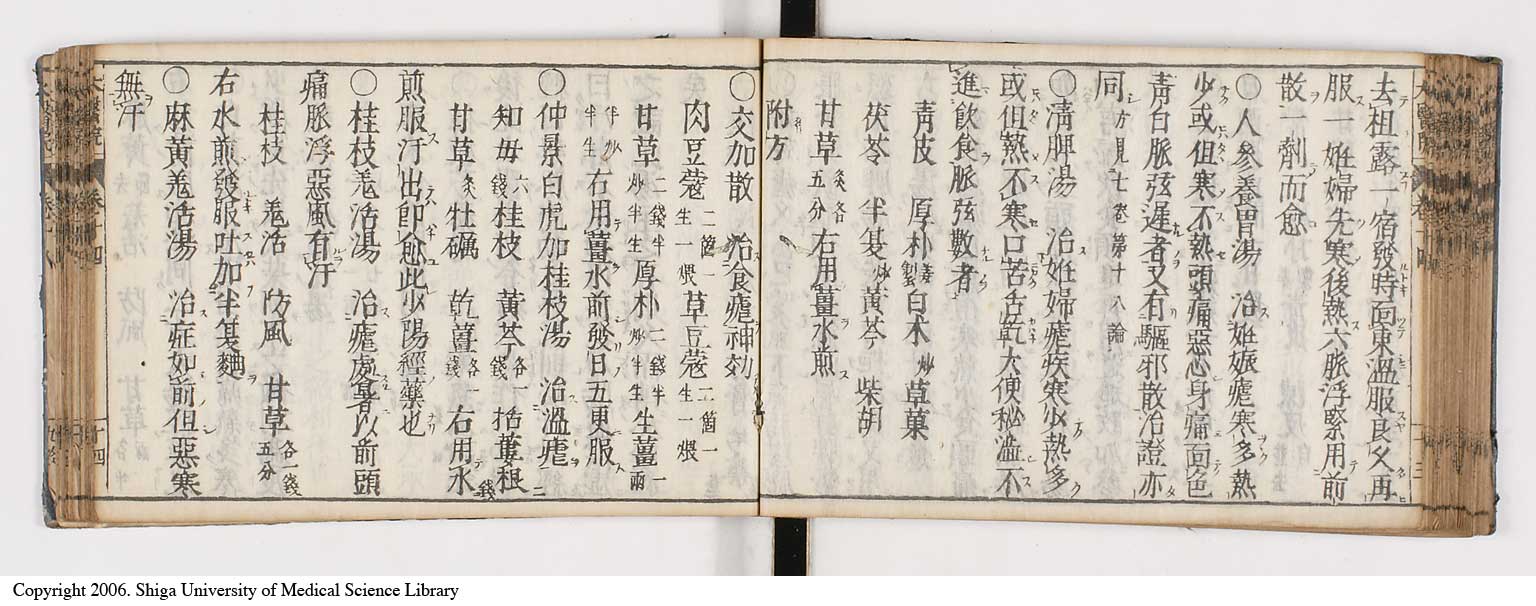 去柤露一宿發時面東溫服良久再
服一妊婦先寒後熱六脈浮緊用前
散一劑而愈
○人參養胃湯　治妊娠瘧寒多熱
少或但寒不熱頭痛惡心身痛面色
青白脈弦遲者又有驅邪散治證亦
同方見七卷第十八論
○淸脾湯　治妊婦瘧疾寒少熱多
或但熱不寒口苦舌乾大便秘澁不
進飮食脈弦數者
青皮　厚朴薑製　白朮炒　草菓
茯苓　半夏炒　黃芩　柴胡
甘草炙各五分　右用薑水煎
附方
○交加散　治食瘧神効
肉豆蔻二箇一生一煨　草豆蔻二箇一生一煨
甘草二錢半炒半生　厚朴二錢半炒半生　生薑一兩
半炒半生　右用薑水煎發日五更服
○仲景白虎加桂枝湯　治溫瘧
知母六錢　桂枝　黃芩各一　括蔞根
甘草炙　牡礪　乾薑各一錢　右用水
煎服汗出卽愈此少陽經藥也
○桂枝羗活湯　治瘧處暑以前頭
痛脈浮惡風有汗
桂枝　羗活　防風　甘草各一錢五分
右水煎發服吐加半夏麯
○麻黃羗活湯　治症如前但惡寒
無汗
十四
Copyright 2006. Shiga University of Medical Science Library